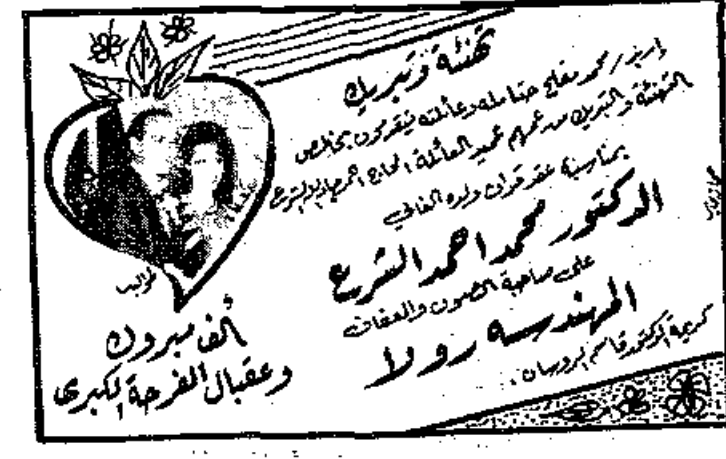 تهنئة وتبريك
محمد مفلح حتامله وعائلته يتقدمون بخالص
التهنئة والتبريك من عمهم عميد العائلة الحاج الشرع
بمناسبة عقد قران ولده الغالي
الدكتور محمد احمد الشرع
على صاحبة الصون والعفاف
المهندسه رولا
كريمة الدكتور قاسم الروسان.
ألف مبروك
وعقبال الفرحة الكبرى